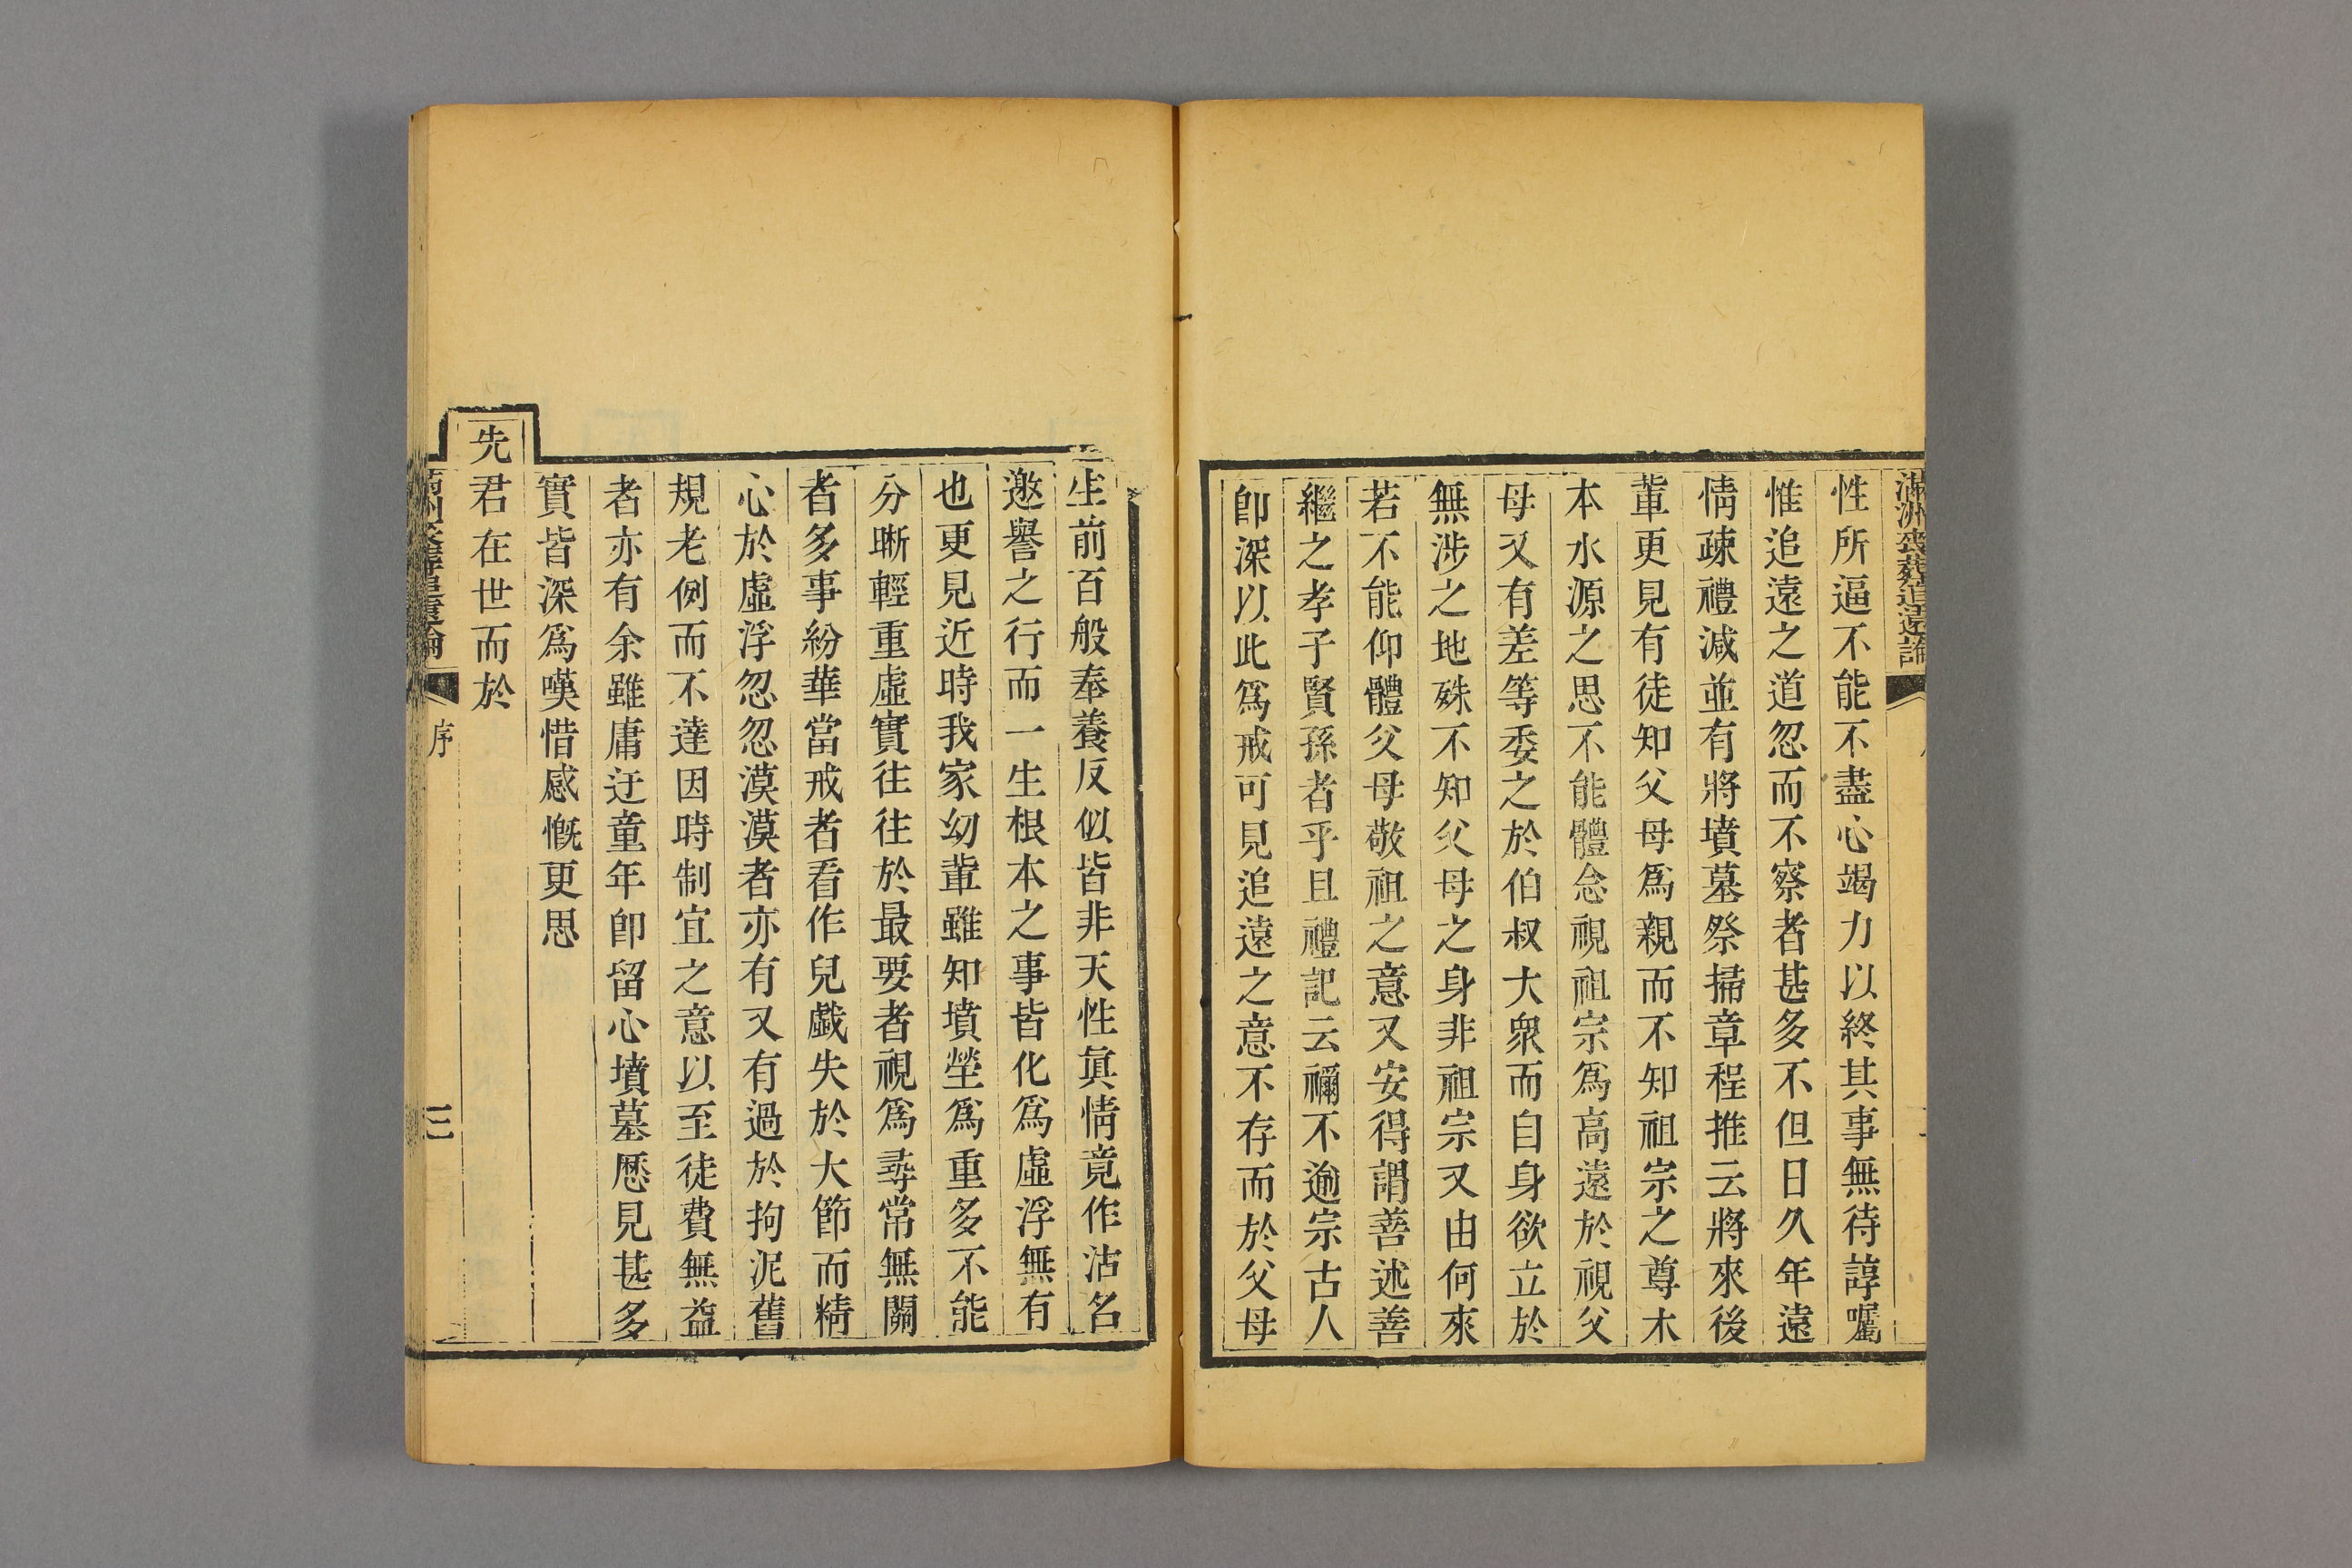 滿洲喪葬追遠論
性所逼不能不盡心竭力以終其事無待諄囑
惟追遠之道忽而不察者甚多不但日久年遠
情疎禮減並有將墳墓祭掃章程推云將來後
輩更見有徒知父母爲親而不知祖宗之尊木
本水源之思不能體念視祖宗爲高遠於視父
母又有差等委之於伯叔大衆而自身欲立於
無涉之地殊不知父母之身非祖宗又由何來
若不能仰體父母敬祖之意又安得謂善述善
繼之孝子賢孫者乎且禮記云禰不逾宗古人
卽深以此爲戒可見追遠之意不存而於父母
生前百般奉養反似皆非天性眞情竟作沽名
邀譽之行而一生根本之事皆化爲虛浮無有
也更見近時我家幼輩雖知墳塋爲重多不能
分晰輕重虛實往往於最要者視爲尋常無關
者多事紛華當戒者看作兒戲失於大節而精
心於虛浮忽忽漠漠者亦有又有過於拘泥舊
規老例而不達因時制宜之意以至徒費無益
者亦有余雖庸迂童年卽留心墳墓歷見甚多
實皆深爲嘆惜感慨更思
先君在世而於
滿洲喪葬追遠論
序
三